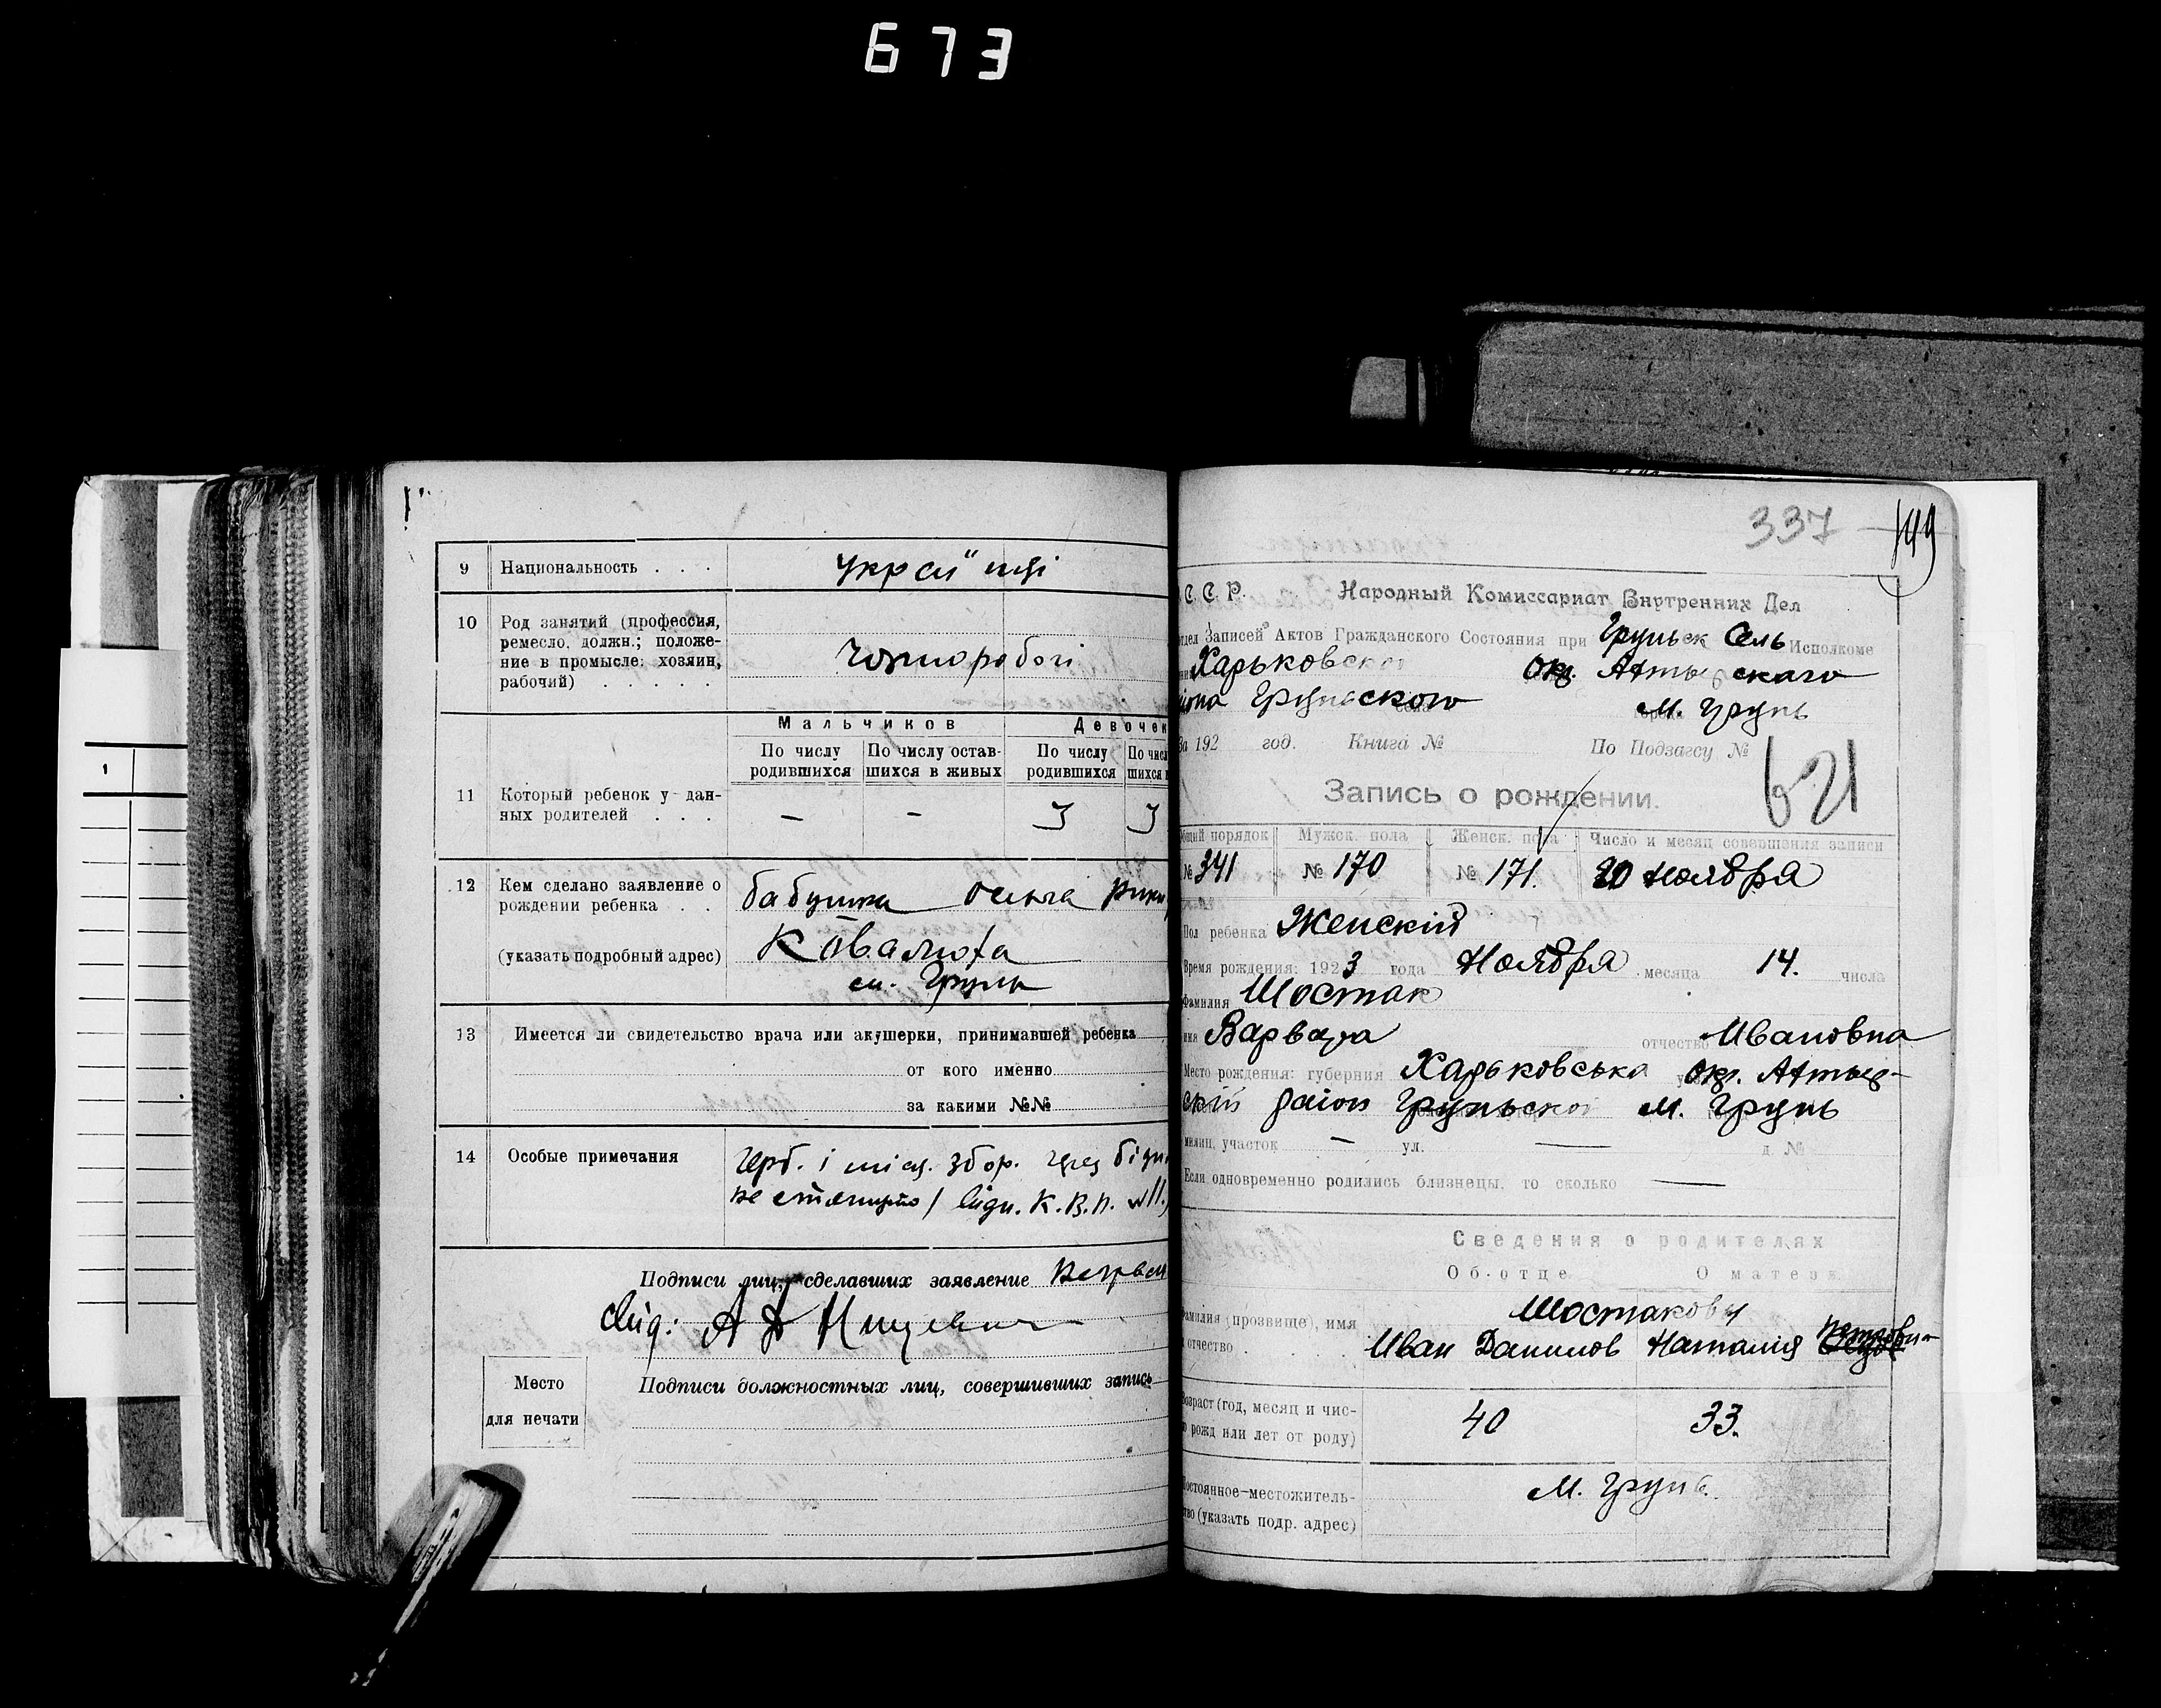 673
9 Национальность . . . Украйнці
10 Род занятий (профессия,
ремесло, должн.; положе-
ние в промысле: хозяин,
рабочий) . . . . . Чорноробочі
Мальчиков Девочек
По числу родившихся По числу остав-шихся в живых По числу родившихся
11 Который ребенок у дан-
ных родителей . . . — — 3 3
12 Кем сделано заявление о
рождении ребенка . . бабушка
(указать подробный адрес)
м. Грунь
13 Имеется ли свидетельство врача или акушерки, принимавшей ребенка
от кого именно
за какими №№
14 Особые примечания Герб. і міс. збор. через
не стягнуто К.В.П.
Подписи лиц, сделавших заявление
Подписи должностных лиц, совершивших запись
Место
для печати
337 149
С.С.Р. Народный Комиссариат Внутренних Дел
Записей Актов Гражданского Состояния при Груньск Сель Исполкоме
Харьковской Окр. Ахтырскаго
Груньского М. Грунь
За 192 год. Книга № По Подзагсу №
621
Запись о рождении.
Общий порядок Мужск. пола Женск. пола Число и месяц совершения записи
№ 341 № 170 № 171. 20 Ноября
Пол ребенка Женскій
Время рождения: 1923 года Ноября месяца 14. числа
Фамилия Шостак
Варвара отчество Ивановна
Место рождения: губерния Харьковська Окр. Ахтыр-
скій район Груньской М. Грунь
участок — ул. — д. №
Если одновременно родились близнецы, то сколько —
Сведения о родителях
Об отце О матери
Шостаковы
Фамилия (прозвище), имя
отчество . . . . Иван Данилов Наталия
Возраст (год, месяц и чис-
рожд или лет от роду) 40 33.
Постоянное-местожитель-
(указать подр. адрес) М. Грунь.